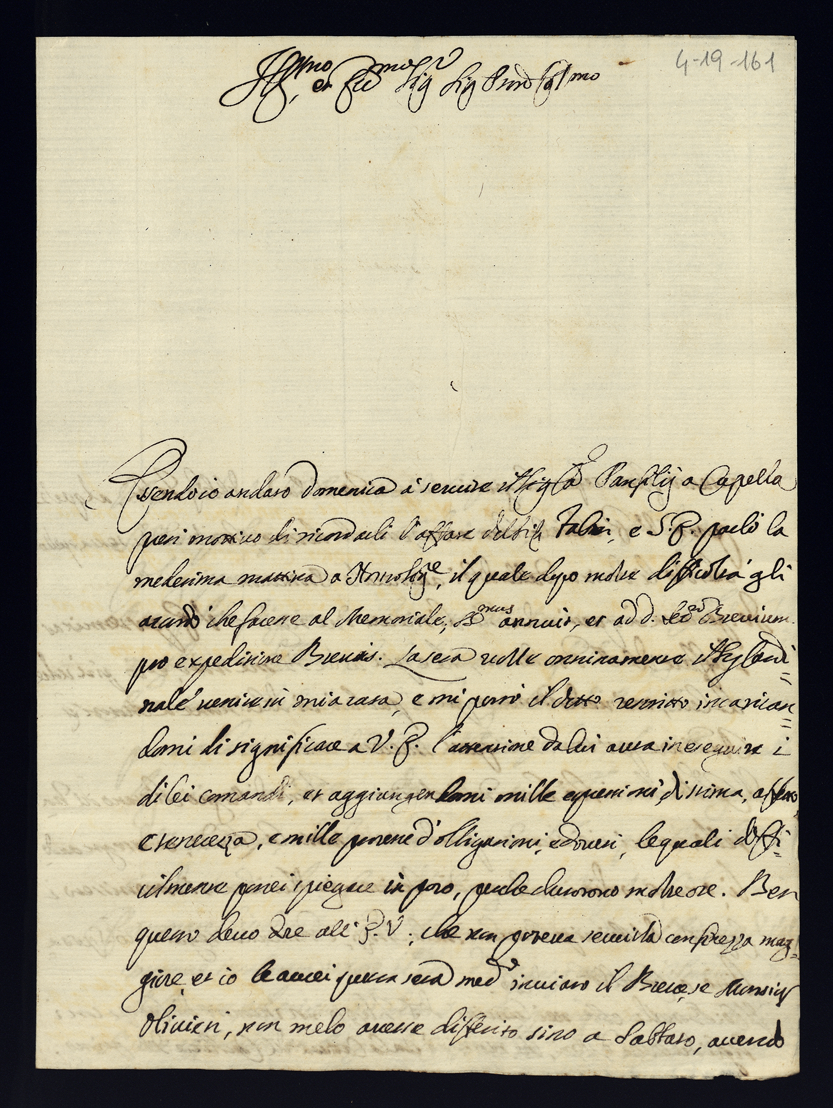 4-19-161
Ill.mo et Ecc.mo Sig.r Sig Pron Col.mo
Essendo io andato domenica à servire il Sig. Panfilij a Capella
presi motivo di ricordarli l'affare del Sig. Fabri, e S. E. parlò la
medesima mattina a Monsig.re, il quale dopo molte difficoltà gli
accordò che facesse al Memoriale, SS.mus annuit, et ad D. Brevium
pro expeditione Brevis. La sera volle onninamente il Sig. Cardi=
nale venire in mia casa, e mi portò il detto rescritto incarican=
domi di significare a V. E. l'attenzione da lui avuta in eseguire i
di lei comandi, et aggiungendomi mille espressioni di stima, affetto
e tenerezza, e mille proteste d'obligazioni, e doveri, le quali diffi=
cilmente potrei spiegare in poco, perche durorono molte ore. Ben
questo devo dire all' E. V., che non poteva servirla con finezza mag=
giore, et io le avrei questa sera med.a inviato il Breve, se Monsig.r
Olivieri, non me lo avesse differito sino a Sabbato, avendo